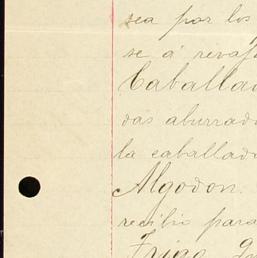 sea por los
se á revaj
Caballad
das aburrado
la caballada
Algodon.
recibio para
Trigo. In